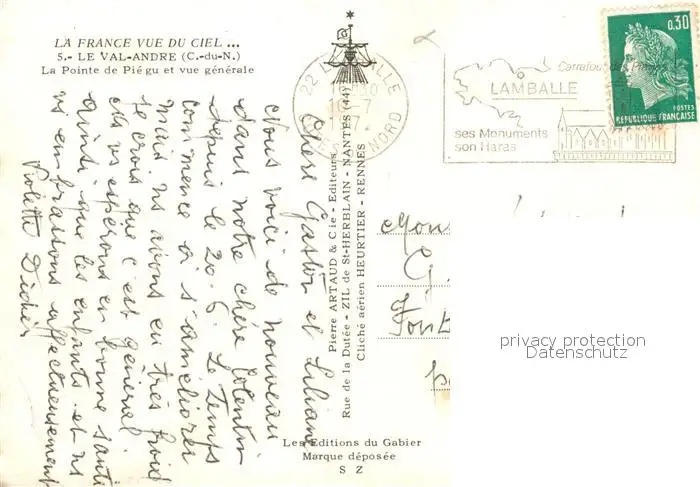 LA FRANCE VUE DU CIEL ...
5.- LE VAL-ANDRE (C.-du-N.)
La Pointe de Piégu et vue générale
22 LAMBALLE
10-7
NORD
Carrefour des
LAMBALLE
ses Monuments
son Haras
0.30
POSTES
REPUBLIQUE FRANCAISE
Chers Gaston et Liliane
Nous voici de nouveau
dans notre chère Cotentin
depuis le 20-6. Le Temps
commence à s'améliorer
mais ns avons eu très froid
je crois que c'est général
ns espérons en bonne santé
ainsi que les enfants et ns
vs embrassons affectueusement
Violette Didier
Pierre ARTAUD & Cie - Editeurs
Rue de la Dutée - ZIL de St-HERBLAIN - NANTES (44)
Cliché aérien HEURTIER - RENNES
Mons
G.
Font
privacy protection
Datenschutz
Les Editions du Gabier
Marque déposée
S Z